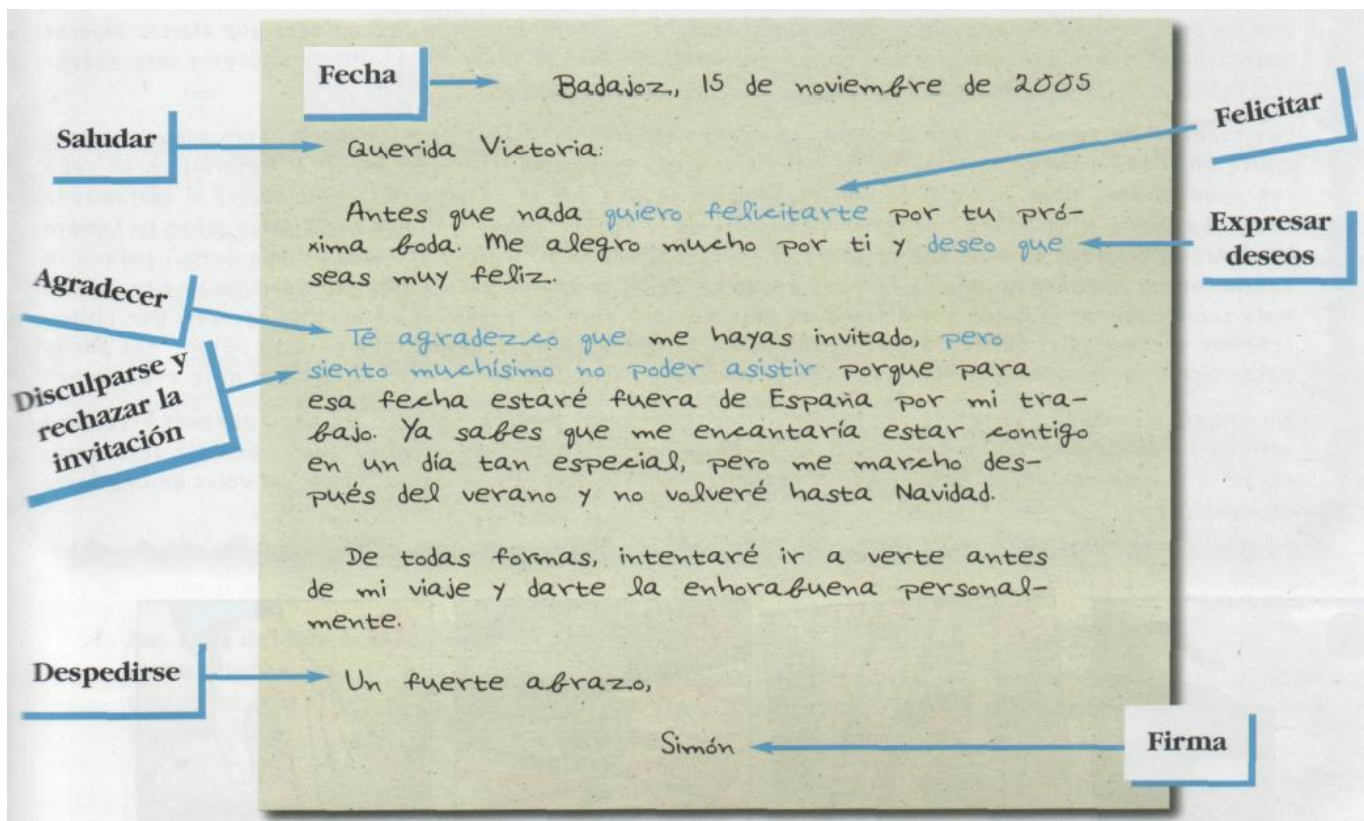 Fecha
Badajoz, 15 de noviembre de 2005
Felicitar
Saludar
Querida Victoria:
Antes que nada quiero felicitarte por tu pró-
xima boda. Me alegro mucho por ti y deseo que
seas muy feliz.
Expresar
deseos
Agradecer
Te agradezco que me hayas invitado, pero
siento muchísimo no poder asistir porque para
esa fecha estaré fuera de España por mi tra-
bajo. Ya sabes que me encantaría estar contigo
en un día tan especial, pero me marcho des-
pués del verano y no volveré hasta Navidad.
Disculparse y
rechazar la
invitación
De todas formas, intentaré ir a verte antes
de mi viaje y darte la enhorabuena personal-
mente.
Despedirse
Un fuerte abrazo,
Simón
Firma